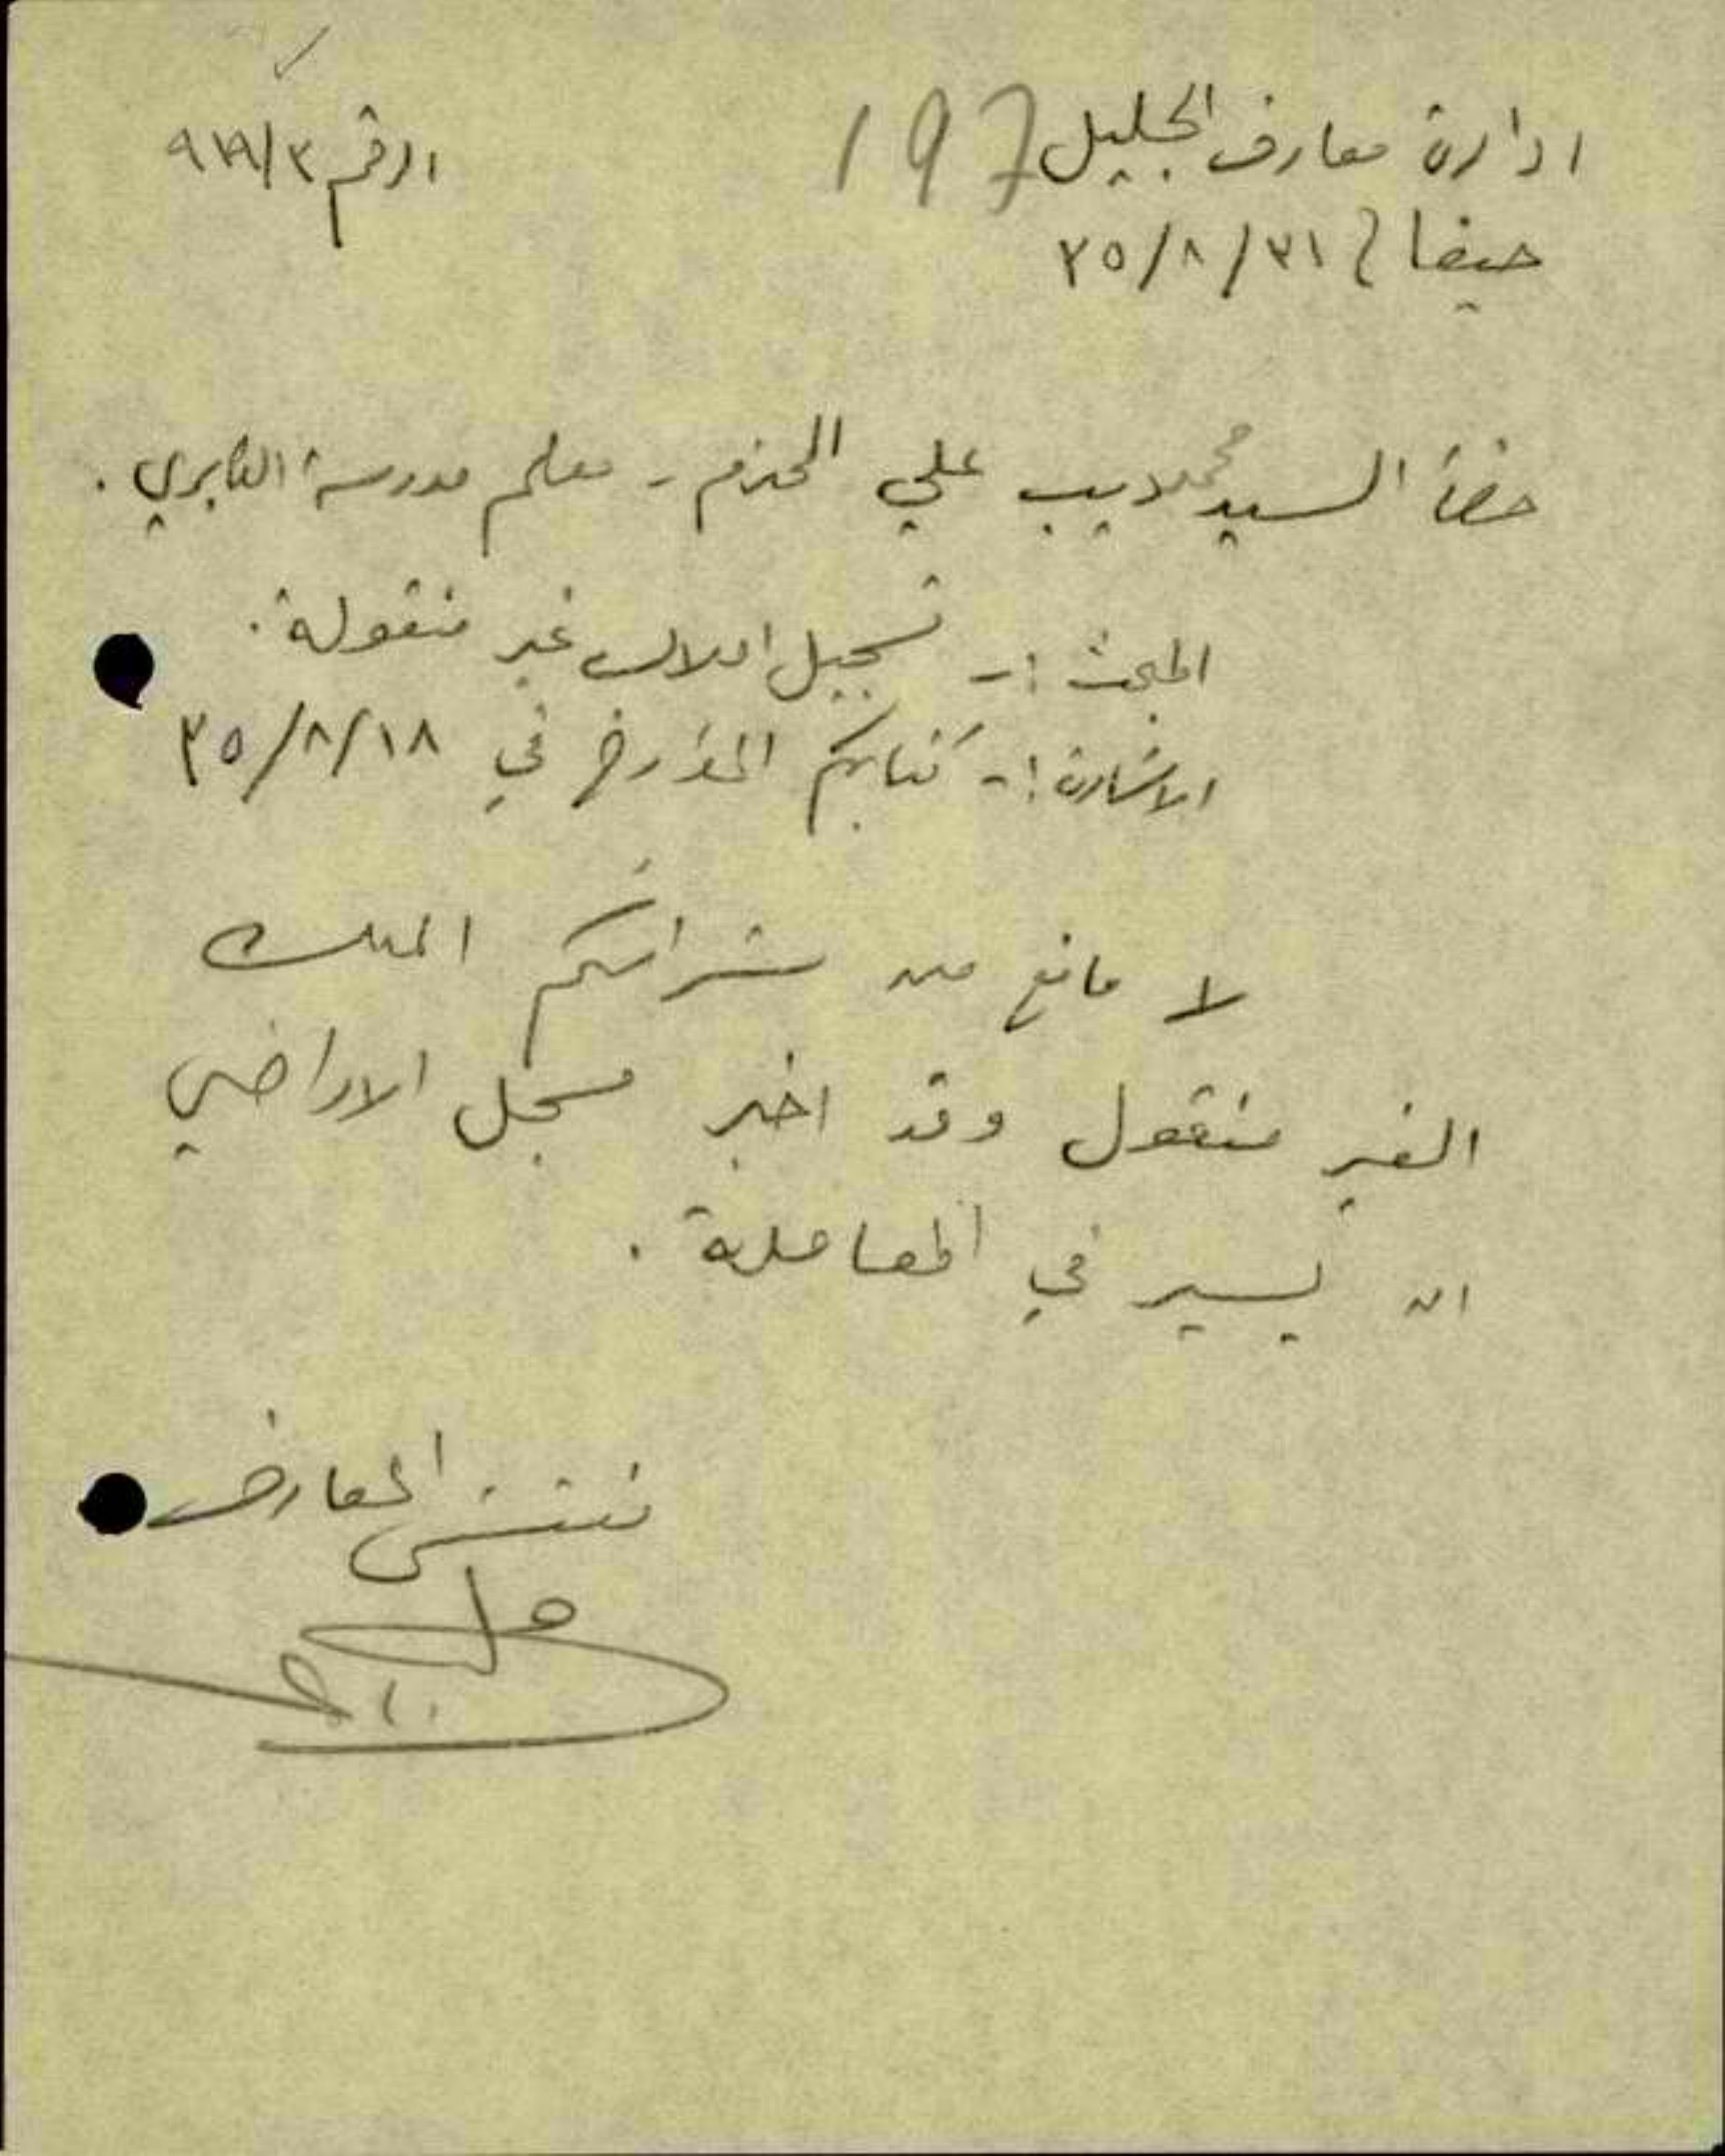 ادارة معارف الجليل 197
الرقم ٩٧٩/٣
حيفا في ٣١/٨/٣٥
حضرة السيد محمد ديب علي المحترم - معلم مدرسة الكابري .
المبحث :- تسجيل املاك غير منقولة .
الاشارة :- كتابكم المؤرخ في ٣٥/٨/١٨
لا مانع من شرائكم الملك
الغير منقول وقد اخبر مسجل الاراضي
ان يسير في المعاملة .
مفتش المعارف